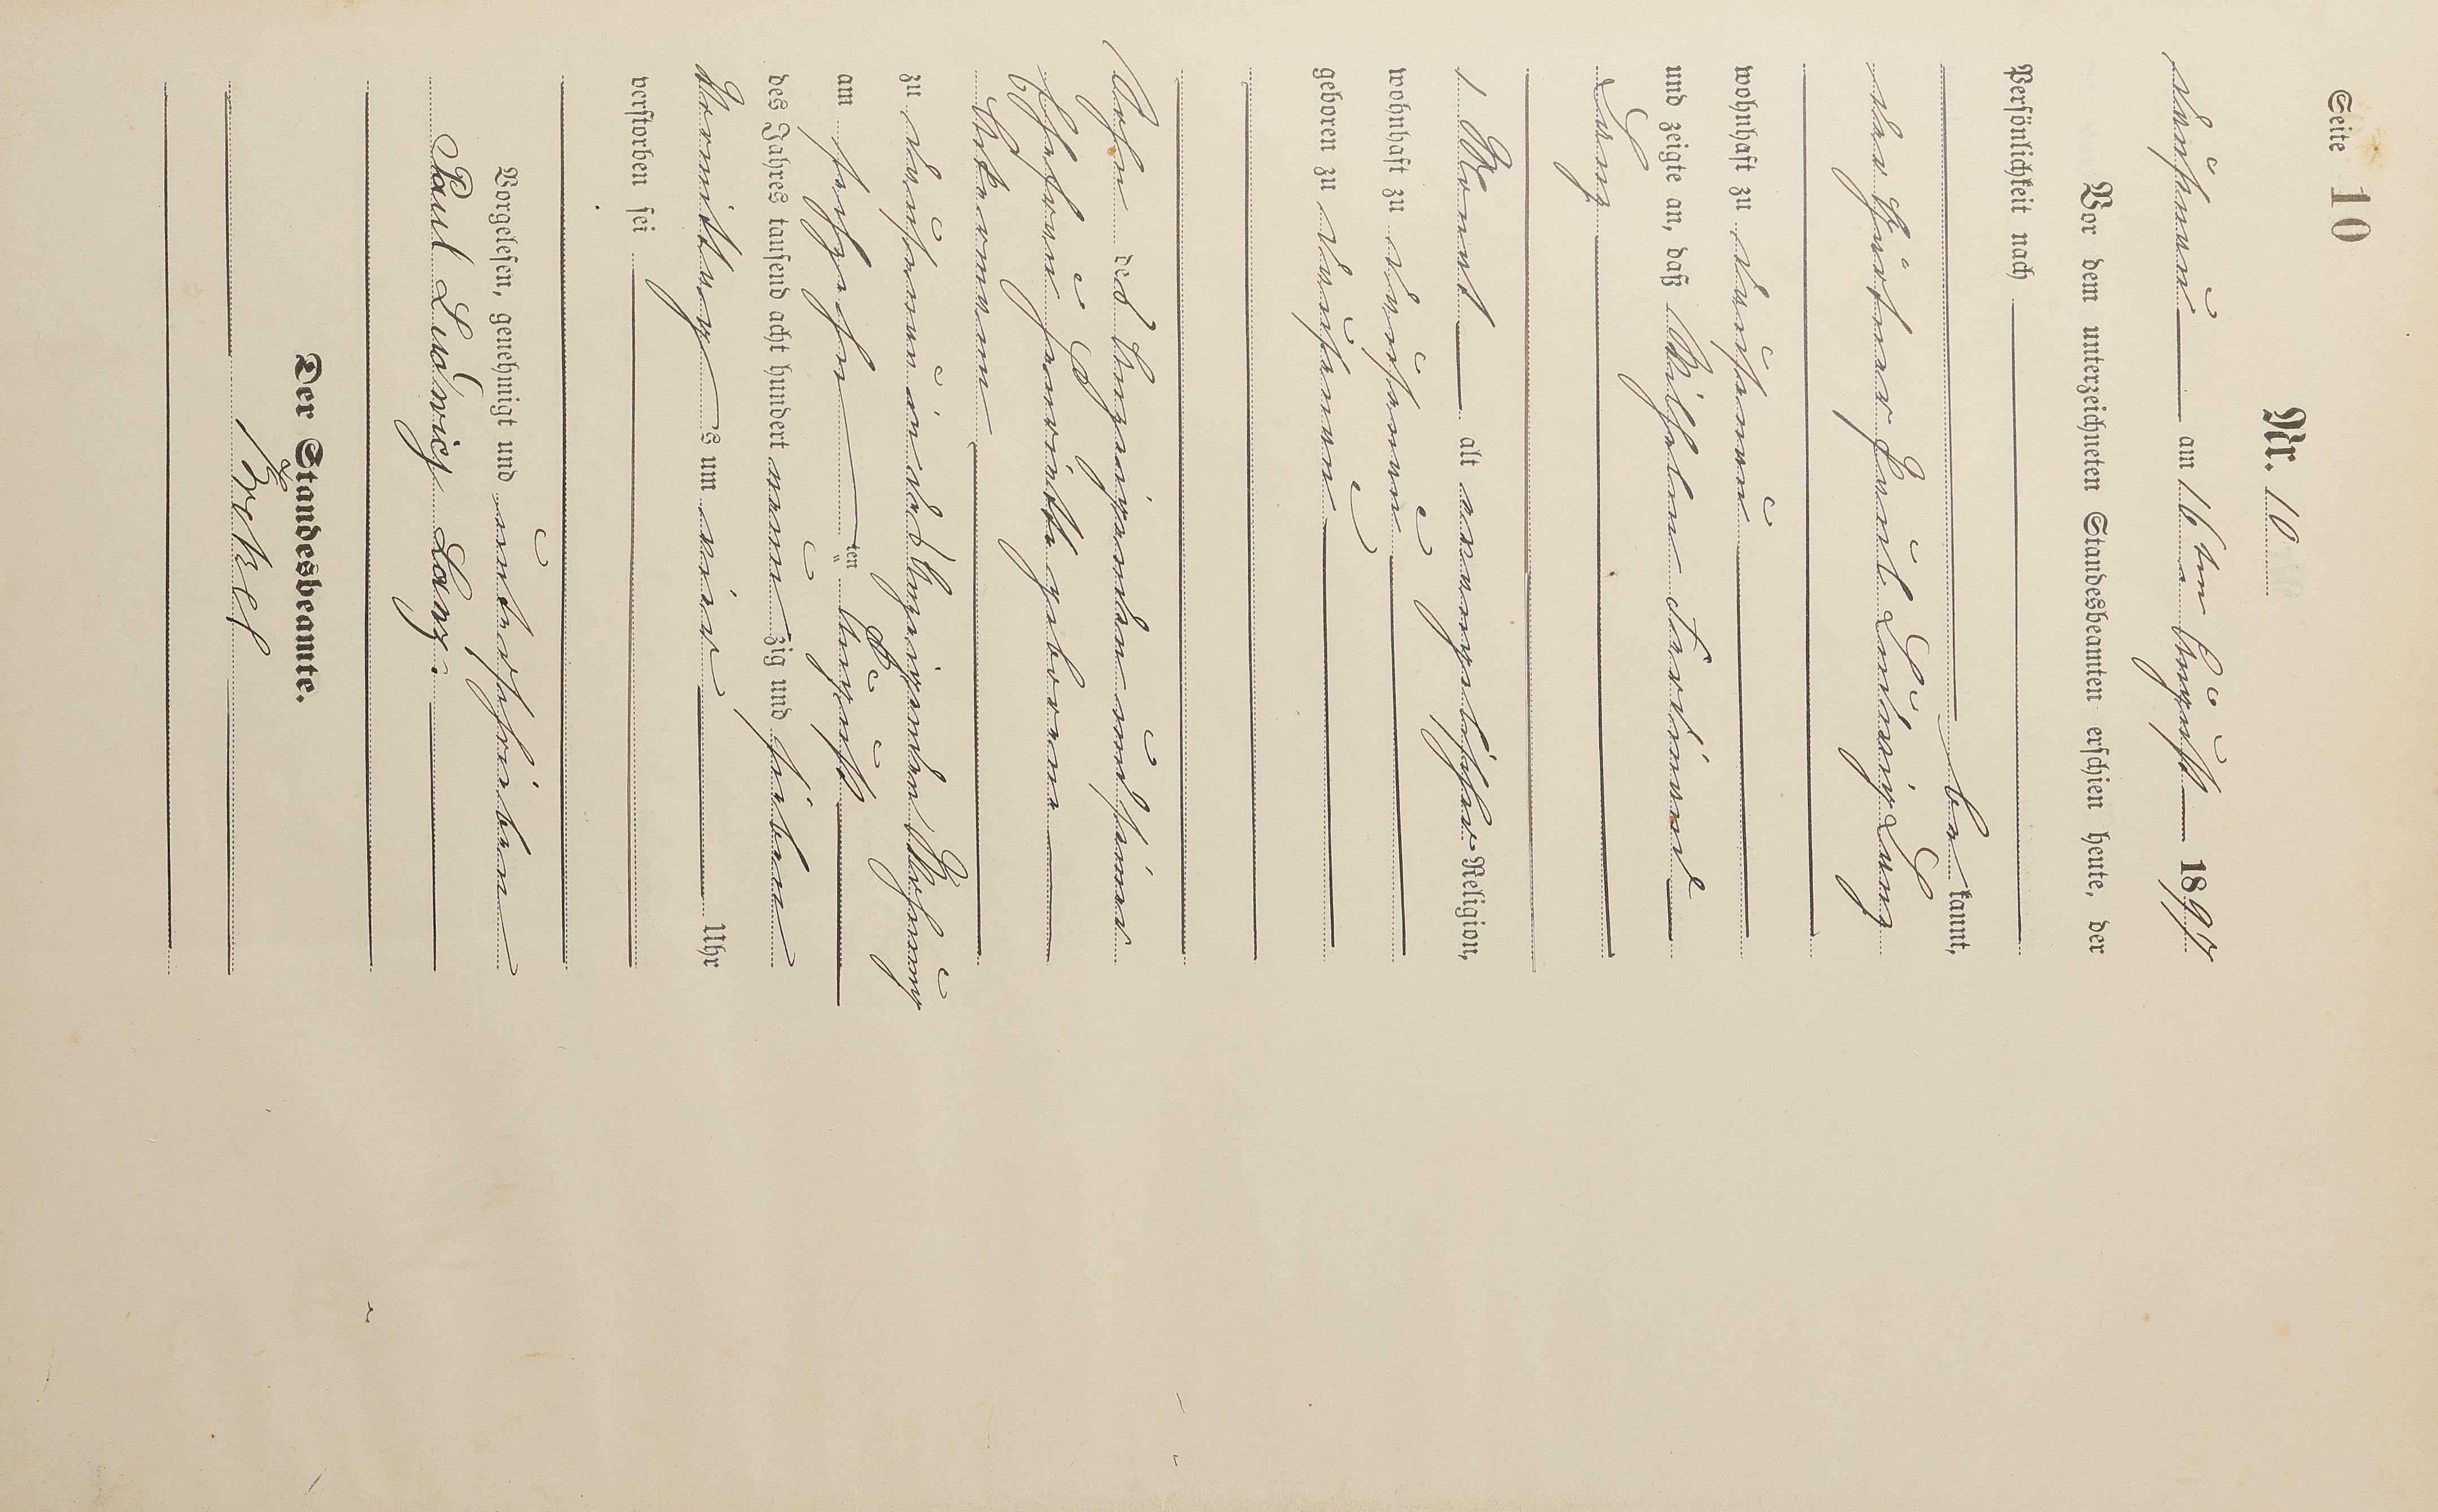 Seite 10
Nr. 10
Dausenau am 16ten August 1897
Vor dem unterzeichneten Standesbeamten erschien heute, der
Persönlichkeit nach
bekannt,
der Gärtner Paul Ludwig Lang
wohnhaft zu Dausenau
und zeigte an, daß Wilhelm Ferdinand
Lang
1 Monat alt evangelischer Religion,
wohnhaft zu Dausenau
geboren zu Dausenau
Sohn des Anzeigenden und seiner
Ehefrau Henriette geborene
zu Dausenau in des Anzeigenden Wohnung
am sechzehnten August
des Jahres tausend acht hundert neunzig und sieben
Vormittags um vier Uhr
verstorben sei
Vorgelesen, genehmigt und unterschrieben
Paul Ludwig Lang.
Der Standesbeamte.